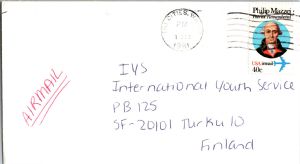 Philip Mazzei
Patriot Remembered
USA airmail
40c
1981
AIRMAIL
IYS
International Youth Service
PB 125
SF-20101 Turku 10
Finland